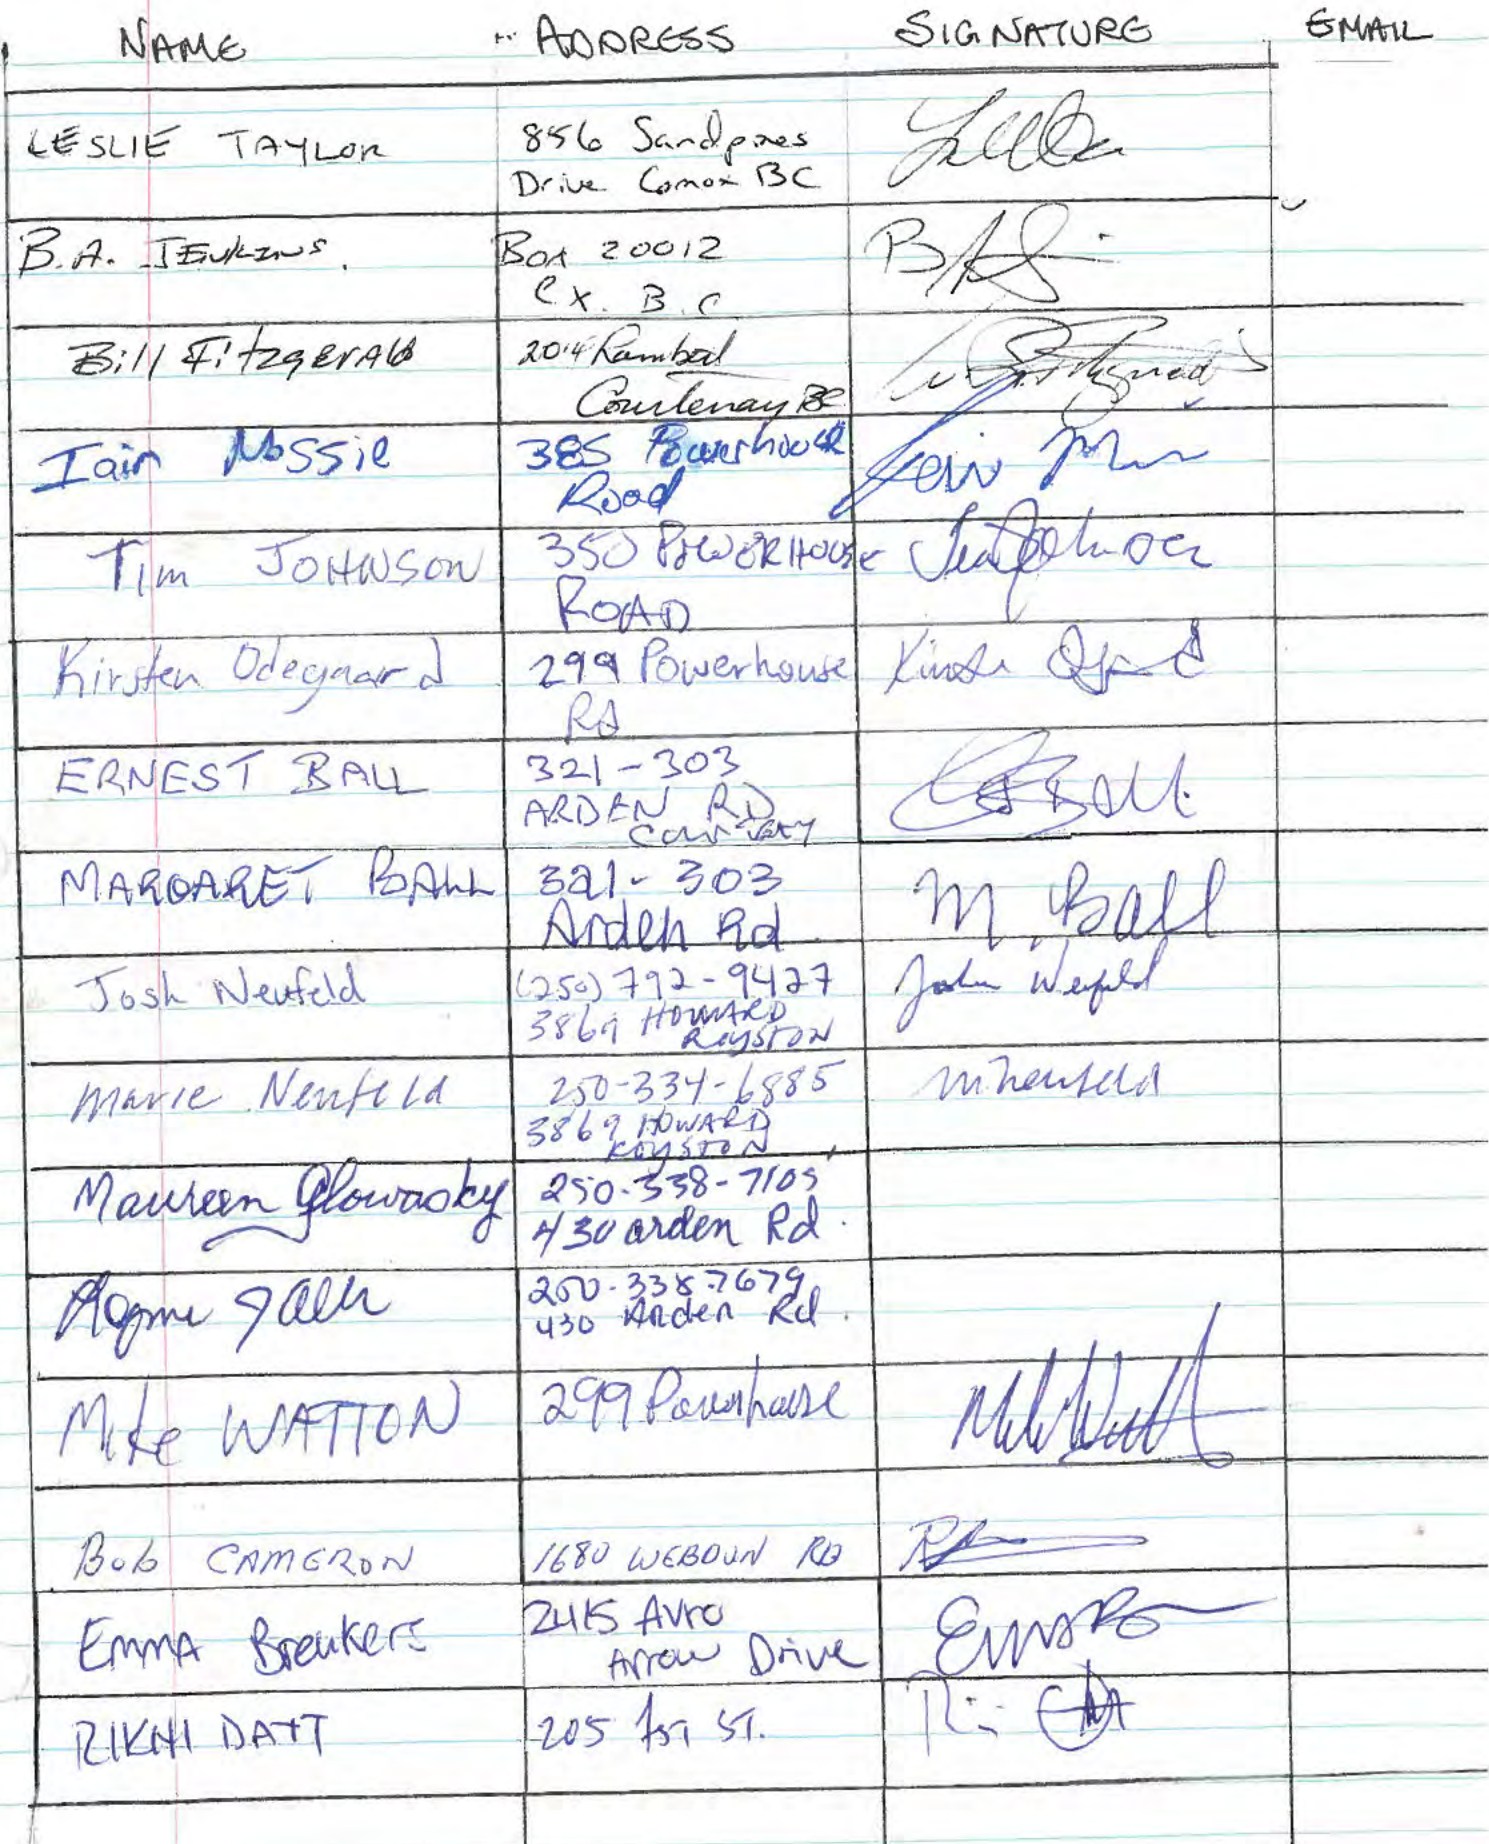 NAME ADDRESS SIGNATURE EMAIL
LESLIE TAYLOR 856 Sandpines
Drive Comox BC
B.A. JENKINS. Box 20012
Cx. B.C
Bill Fitzgerald 2014 Lambert
Courtenay BC
Iain Mossie 385 Powerhouse
Road
Tim JOHNSON 350 POWERHOUSE Tim Johnson
ROAD
Kirsten Odegaard 299 Powerhouse
Rd
ERNEST BALL 321-303 Ball
ARDEN RD
MARGARET BALL 321-303 M. Ball
Arden Rd
Josh Neufeld (250) 792-9427 Josh Neufeld
3869 HOWARD
ROYSTON
Marie Neufeld 250-334-6885 M Neufeld
3869 HOWARD
ROYSTON
Maureen Glowasky 250-338-7105
430 Arden Rd.
250-338-7679
430 Arden Rd.
Mike WATTON 299 Powerhouse
Bob CAMERON 1680 WEBDON RD
EMMA Breukers 2415 Avro
Arrow Drive
RIKHI DATT 205 1ST ST.